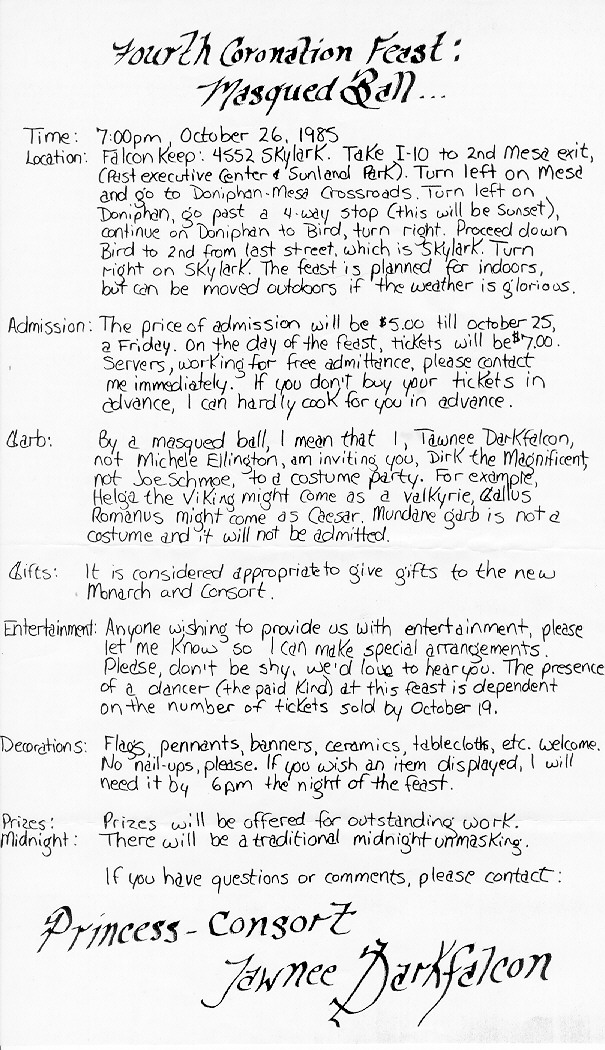 Fourth Coronation Feast:
Masqued Ball...
Time: 7:00pm, October 26, 1985
Location: Falcon Keep: 4552 Skylark. Take I-10 to 2nd Mesa exit,
(Past executive Center & Sunland Park). Turn left on Mesa
and go to Doniphan-Mesa Crossroads. Turn left on
Doniphan, go past a 4-way stop (this will be Sunset),
continue on Doniphan to Bird, turn right. Proceed down
Bird to 2nd from last street, which is Skylark. Turn
right on Skylark. The feast is planned for indoors,
but can be moved outdoors if the weather is glorious.
Admission: The price of admission will be $5.00 till october 25,
a Friday. On the day of the feast, tickets will be $7.00.
Servers, working for free admittance, please contact
me immediately. If you don't buy your tickets in
advance, I can hardly cook for you in advance.
Garb: By a masqued ball, I mean that I, Tawnee Darkfalcon,
not Michele Ellington, am inviting you, Dirk the Magnificent,
not Joe Schmoe, to a costume party. For example,
Helga the Viking might come as a valkyrie, Gallus
Romanus might come as Caesar. Mundane garb is not a
costume and it will not be admitted.
Gifts: It is considered appropriate to give gifts to the new
Monarch and Consort.
Entertainment: Anyone wishing to provide us with entertainment, please
let me know so I can make special arrangements.
Please, don't be shy, we'd love to hear you. The presence
of a dancer (the paid kind) at this feast is dependent
on the number of tickets sold by October 19.
Decorations: Flags, pennants, banners, ceramics, tablecloths, etc. welcome.
No nail-ups, please. If you wish an item displayed, I will
need it by 6pm the night of the feast.
Prizes: Prizes will be offered for outstanding work.
Midnight: There will be a traditional midnight unmasking.
If you have questions or comments, please contact:
Princess-Consort
Tawnee Darkfalcon